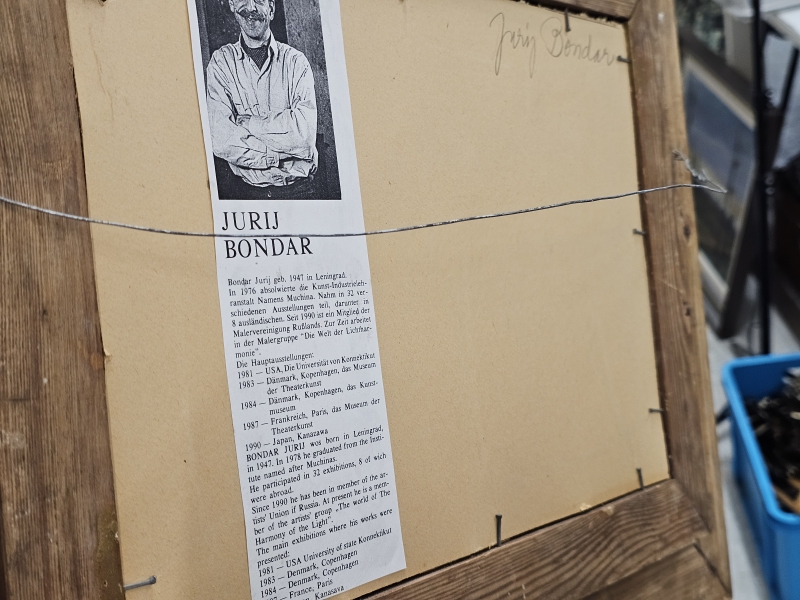 Jurij Bondar
JURIJ
BONDAR
Bondar Jurij geb. 1947 in Leningrad.
In 1976 absolwierte die Kunst-Industrieleh-
ranstalt Namens Muchina. Nahm in 32 ver-
schiedenen Ausstellungen teil, darunter in
8 ausländischen. Seit 1990 ist ein Mitglied der
Malervereinigung Rußlands. Zur Zeit arbeitet
in der Malergruppe "Die Welt der Lichthar-
monie".
Die Hauptausstellungen:
1981 — USA, Die Universität von Konnektikut
1983 — Dänmark, Kopenhagen, das Museum
der Theaterkunst
1984 — Dänmark, Kopenhagen, das Kunst-
museum
1987 — Frankreich, Paris, das Museum der
Theaterkunst
1990 — Japan, Kanazawa
BONDAR JURIJ wos born in Leningrad,
in 1947. In 1978 he graduated from the Insti-
tute named after Muchinas.
He participated in 32 exhibitions, 8 of wich
were abroad.
Since 1990 he has been in member of the ar-
tists' Union if Russia. At present he is a mem-
ber of the artists' group „The world of The
Harmony of the Light".
The main exhibitions where his works were
presented:
1981 — USA University of state Konnektikut
1983 — Denmark, Copenhagen
1984 — Denmark, Copenhagen
France, Paris
Kanasava